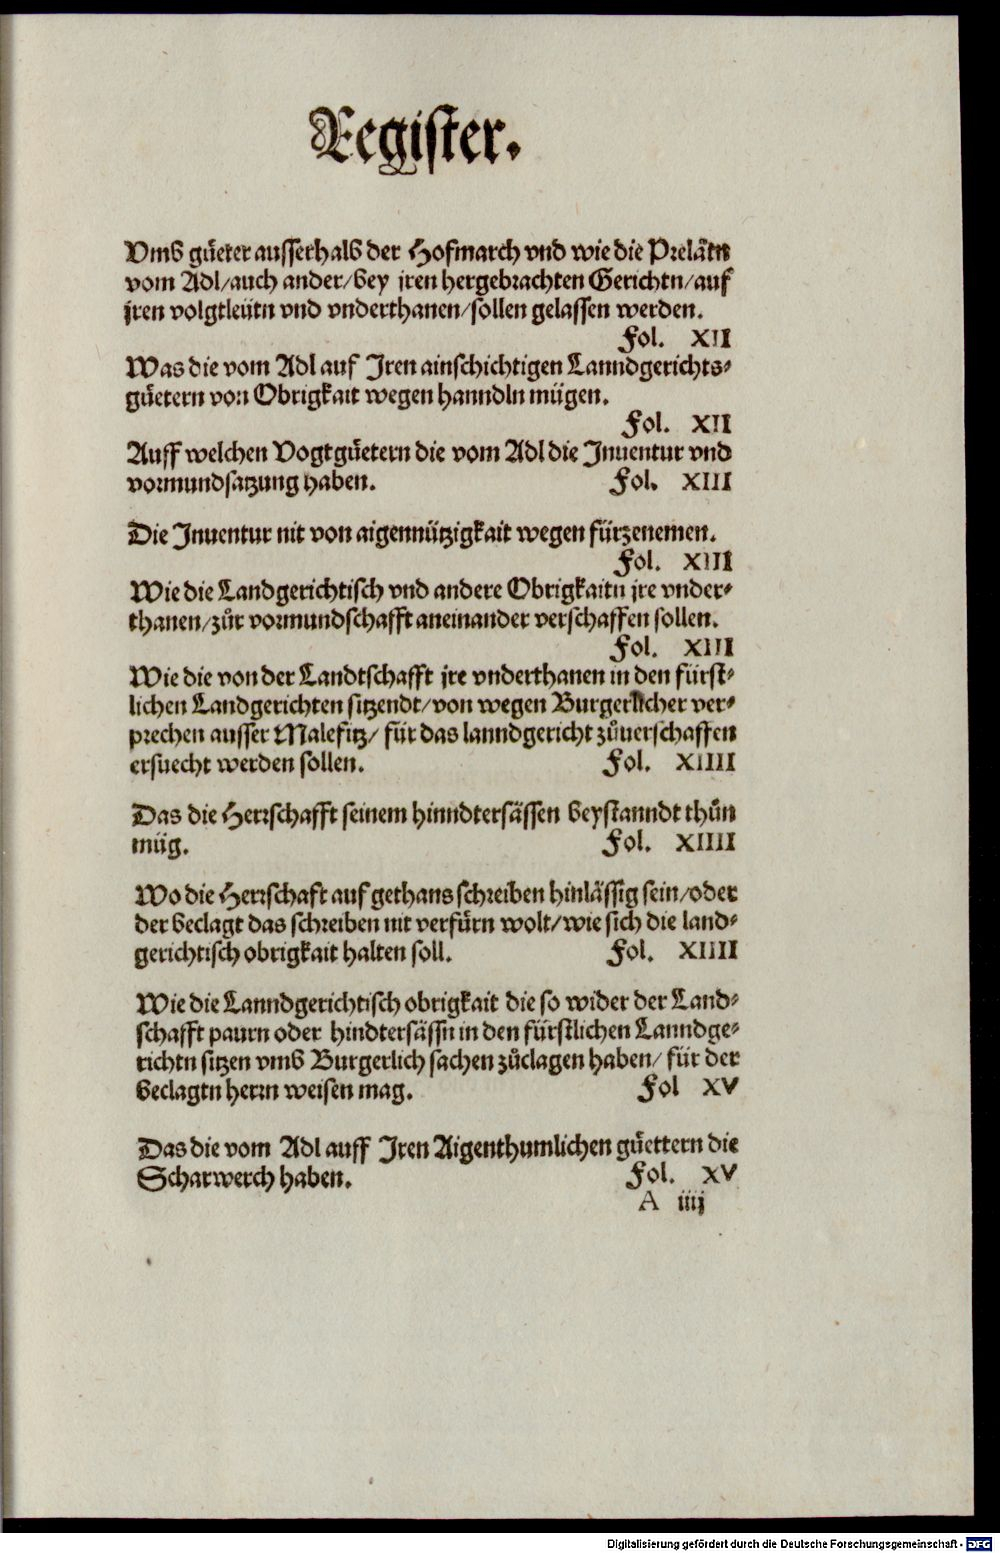 Register.
Vmb güeter ausserhalb der Hofmarch vnd wie die Prelätn
vom Adl/auch ander/bey jren hergebrachten Gerichtn/auf
jren volgtleütn vnd vnderthanen/sollen gelassen werden.
Fol. XII
Was die vom Adl auf Jren ainschichtigen Lanndgerichts⸗
güetern von Obrigkait wegen hanndln mügen.
Fol. XII
Auff welchen Vogtgüetern die vom Adl die Jnuentur vnd
vormundsatzung haben. Fol. XIII
Die Jnuentur nit von aigennützigkait wegen fürzenemen.
Fol. XIII
Wie die Landgerichtisch vnd andere Obrigkaitn jre vnder⸗
thanen/zůr vormundschafft aneinander verschaffen sollen.
Fol. XIII
Wie die von der Landtschafft jre vnderthanen in den fürst⸗
lichen Landgerichten sitzendt/von wegen Burgerlicher ver⸗
prechen ausser Malefitz/ für das lanndgericht zůuerschaffen
ersuecht werden sollen. Fol. XIIII
Das die Herrschafft seinem hinndtersässen beystanndt thůn
müg. Fol. XIIII
Wo die Herrschaft auf gethans schreiben hinlässig sein/oder
der beclagt das schreiben nit verfürn wolt/wie sich die land⸗
gerichtisch obrigkait halten soll. Fol. XIIII
Wie die Lanndgerichtisch obrigkait die so wider der Land⸗
schafft paurn oder hindtersässn in den fürstlichen Lanndge⸗
richtn sitzen vmb Burgerlich sachen zůclagen haben/ für der
beclagtn herrn weisen mag. Fol XV
Das die vom Adl auff Jren Aigenthumlichen güettern die
Scharwerch haben. Fol. XV
A iiij
Digitalisierung gefördert durch die Deutsche Forschungsgemeinschaft - DFG